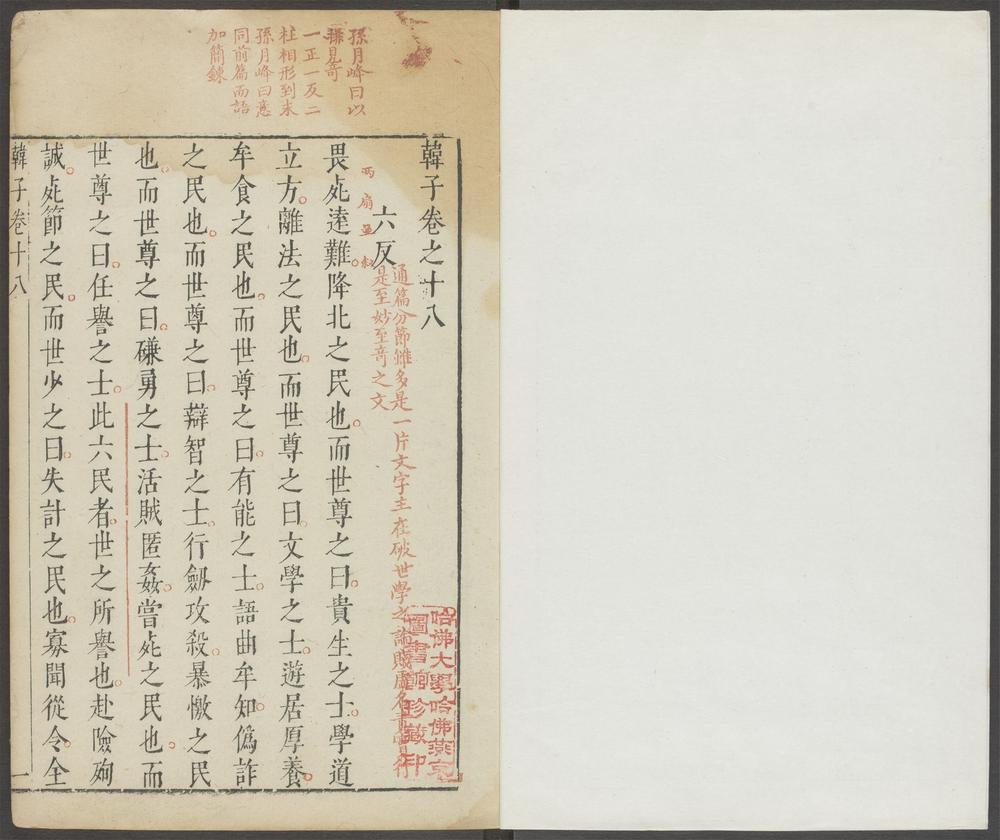 孫月峰曰以
一正一反二
柱相形到末
孫月峰曰意
同前篇而語
加簡鍊
韓子卷之十八
六反
通篇分節雖多是一片文字主在破世學之論賤虛名責實行
是至妙至奇之文
哈佛大學哈佛燕京
圖書館珍藏印
兩扇
畏死遠難降北之民也而世尊之曰貴生之士學道
立方離法之民也而世尊之曰文學之士遊居厚養
牟食之民也而世尊之曰有能之士語曲牟知僞詐
之民也而世尊之曰辯智之士行劒攻殺暴憿之民
也而世尊之曰磏勇之士活賊匿姦當死之民也而
世尊之曰任譽之士此六民者世之所譽也赴險殉
誠死節之民而世少之曰失計之民也寡聞從令全
韓子卷十八
一